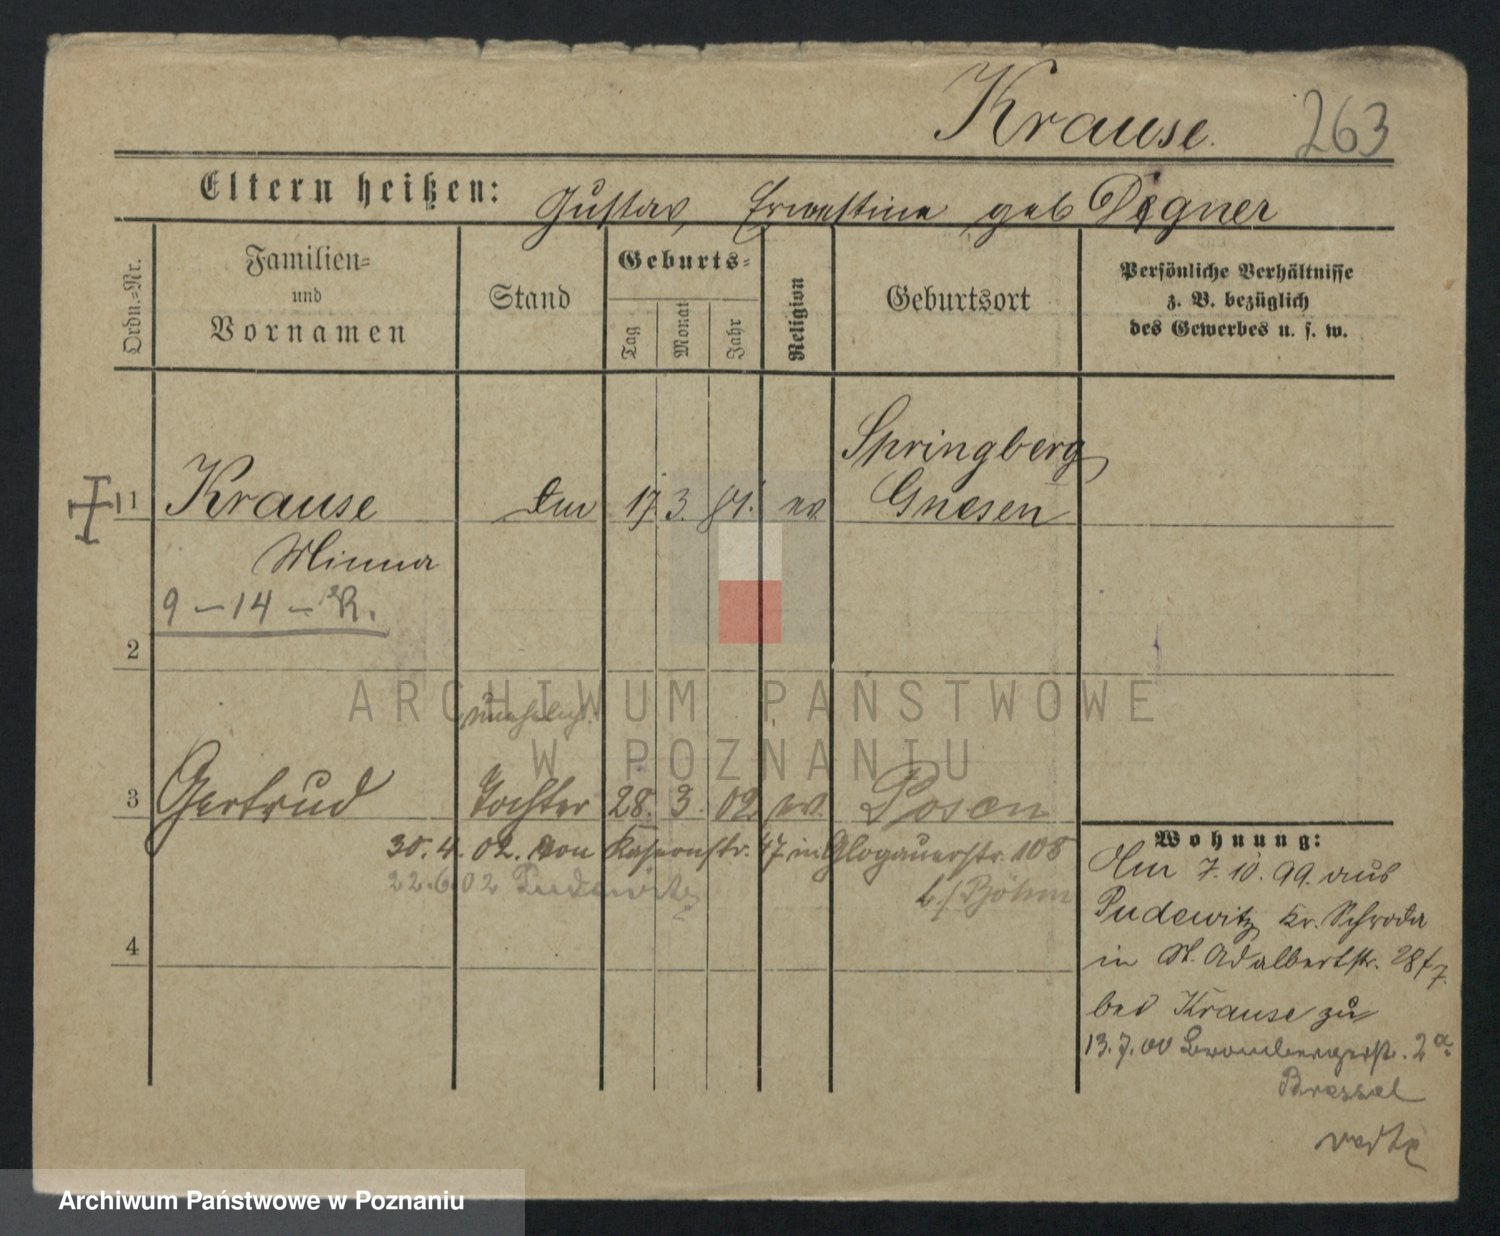 Krause. 263
Eltern heißen: Gustav, Ernestine geb Degner
Ordn.-Nr.
Familien-
und
Vornamen
Stand
Geburts-
Tag
Monat
Jahr
Religion
Geburtsort
Persönliche Verhältnisse
z. B. bezüglich
des Gewerbes u. s. w.
Springberg
1 Krause 17. 3. 81. ev Gnesen
Minna
9 – 14 – R.
2
unehelich
3 Gertrud Tochter 28. 3. 02. ev. Posen
30. 4. 02. von Kasernstr. 47 in Glogauerstr. 108
22.6.02 Pudewitz
b/ Böhm
4
Wohnung:
Am 7. 10. 99. aus
Pudewitz Kr. Schroda
in St. Adalbertstr. 28/7.
bei Krause zu
13.7.00 Brombergerstr. 2a
Bressel
ARCHIWUM PAŃSTWOWE
W POZNANIU
Archiwum Państwowe w Poznaniu